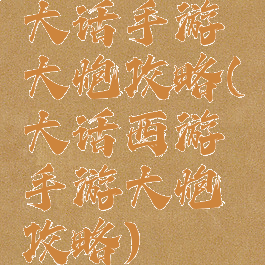 大话手游
大炮攻略(
大话西游
手游大炮
攻略)